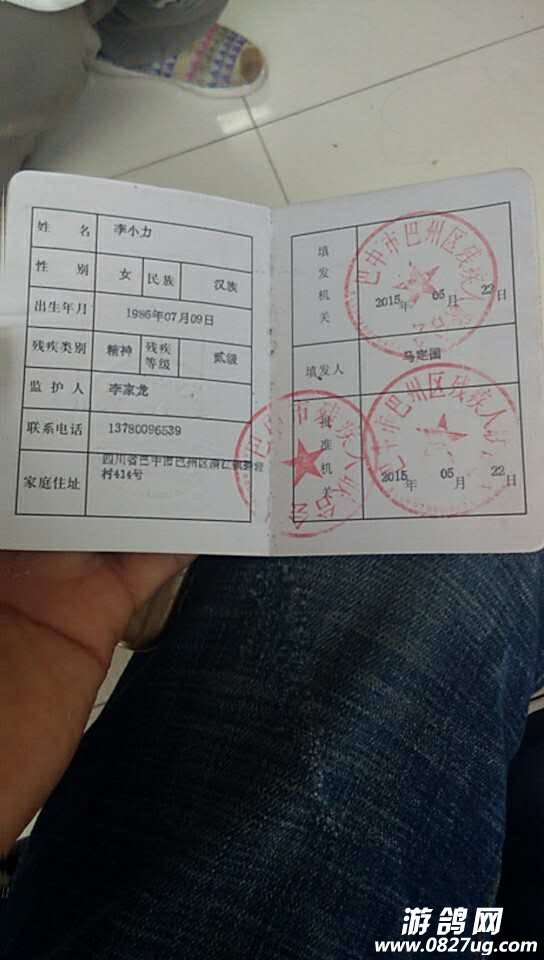 姓 名 李小力
性 别 女 民族 汉族
出生年月 1986年07月09日
残疾类别 精神 残疾等级 贰级
监 护 人 李家龙
联系电话 13780096539
家庭住址 四川省巴中市巴州区
村414号
填发机关 巴中市巴州区残疾人
2015年 05月 22日
填发人 马定国
批准机关 巴中市巴州区残疾人联
2015年 05月 22日
巴中市残疾人联合会
游鸽网
www.0827ug.com